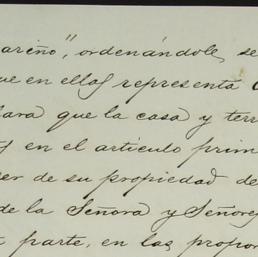 ariño", ordenándole, se
ue en ellos representa
lara que la casa y terr
en el articulo prim
er de su propiedad de
de la Señora y Señores
parte, en las propor